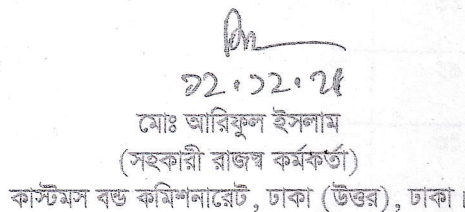 মোঃ আরিফুল ইসলাম
(সহকারী রাজস্ব কর্মকর্তা)
কাস্টমস বন্ড কমিশনারেট, ঢাকা (উত্তর), ঢাকা।